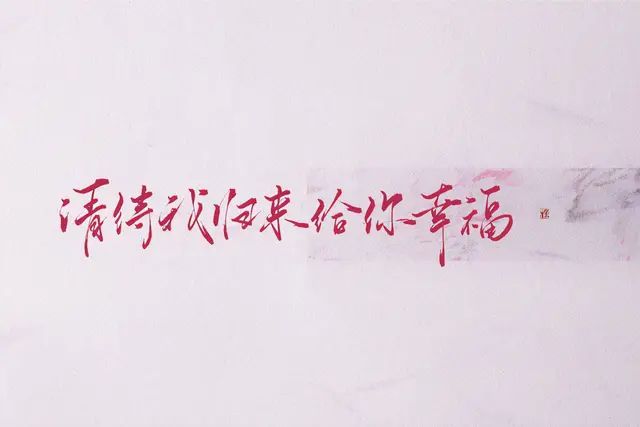 请待我归来给你幸福